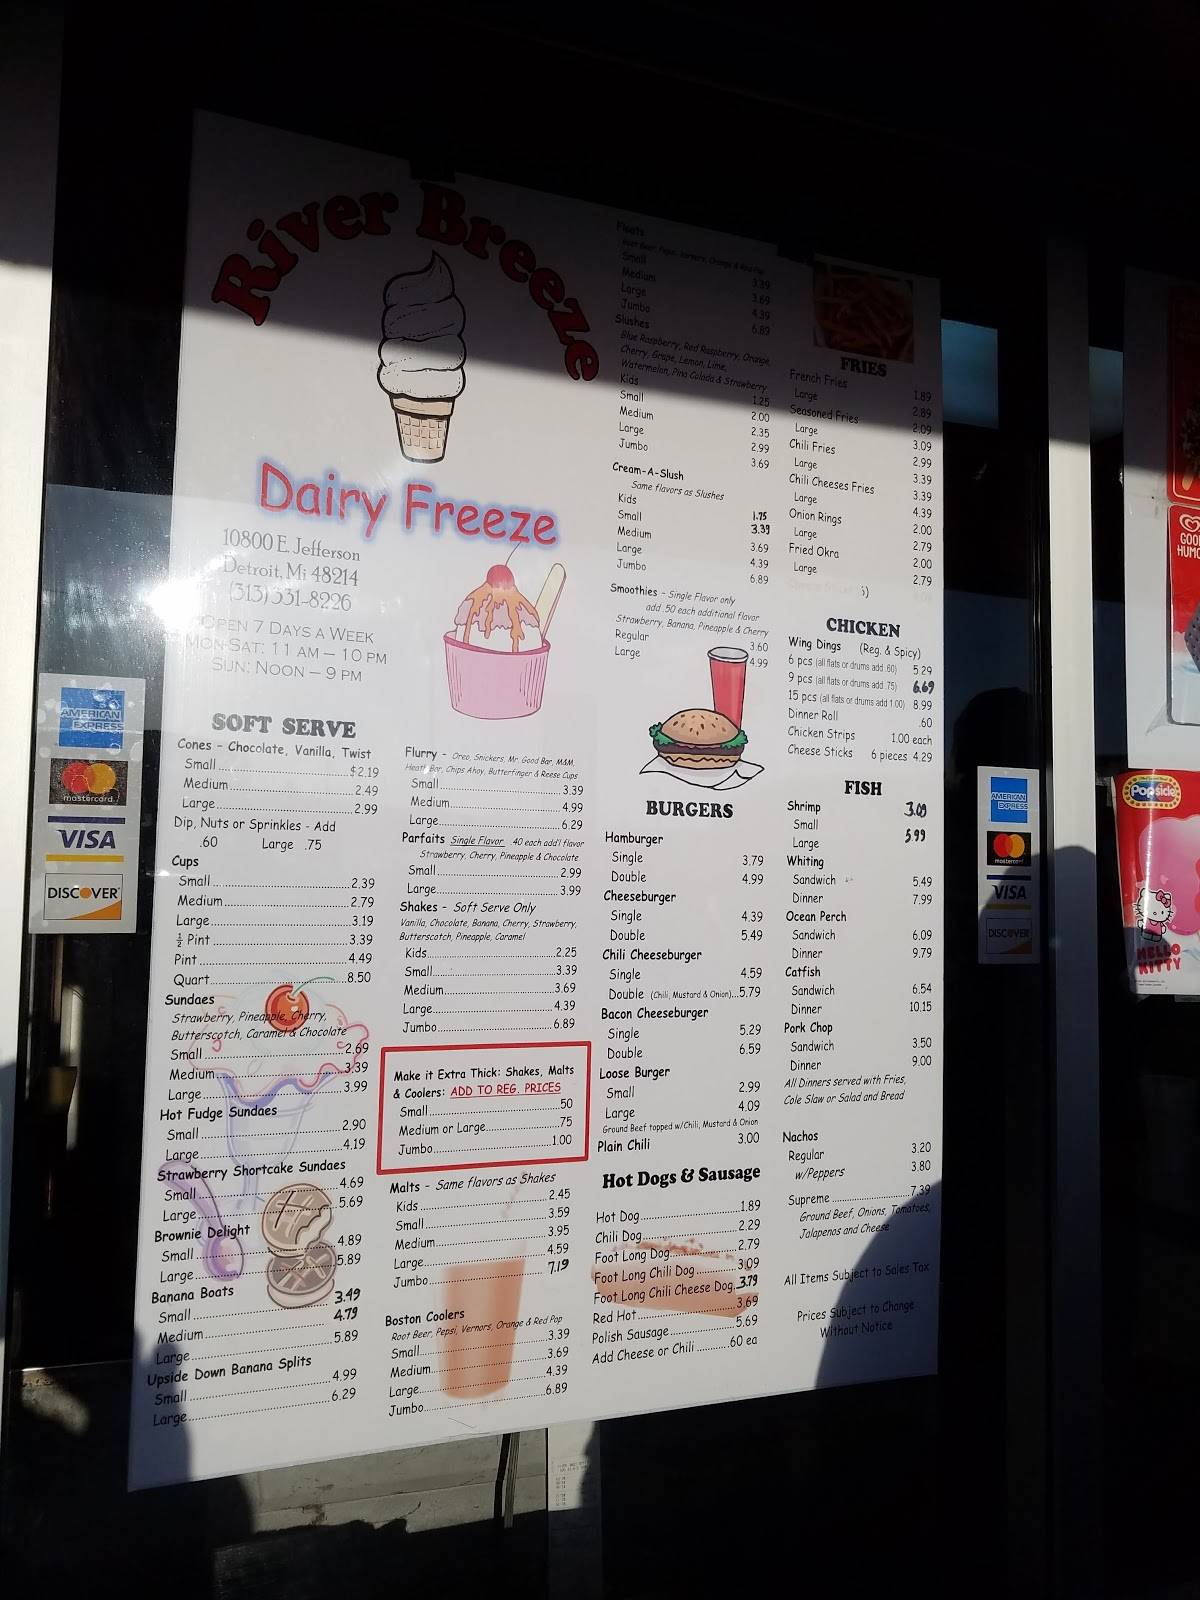 River Breeze
Dairy Freeze
10800 E. Jefferson
Detroit, Mi 48214
(313)331-8226
Open 7 Days a Week
Mon-Sat: 11 am – 10 pm
Sun: Noon – 9 pm
SOFT SERVE
Cones - Chocolate, Vanilla, Twist
Small $2.19
Medium 2.49
Large 2.99
Dip, Nuts or Sprinkles - Add
.60 Large .75
Cups
Small 2.39
Medium 2.79
Large 3.19
½ Pint 3.39
Pint 4.49
Quart 8.50
Sundaes
Strawberry, Pineapple, Cherry,
Butterscotch, Caramel & Chocolate
Small 2.69
Medium 3.39
Large 3.99
Hot Fudge Sundaes
Small 2.90
Large 4.19
Strawberry Shortcake Sundaes
Small 4.69
Large 5.69
Brownie Delight
Small 4.89
Large 5.89
Banana Boats
Small 3.49
Medium 4.79
Large 5.89
Upside Down Banana Splits
Small 4.99
Large 6.29
Flurry - Oreo, Snickers, Mr. Good Bar, M&M,
Heath Bar, Chips Ahoy, Butterfinger & Reese Cups
Small 3.39
Medium 4.99
Large 6.29
Parfaits Single Flavor .40 each add'l flavor
Strawberry, Cherry, Pineapple & Chocolate
Small 2.99
Large 3.99
Shakes - Soft Serve Only
Vanilla, Chocolate, Banana, Cherry, Strawberry,
Butterscotch, Pineapple, Caramel
Kids 2.25
Small 3.39
Medium 3.69
Large 4.39
Jumbo 6.89
Make it Extra Thick: Shakes, Malts
& Coolers: ADD TO REG. PRICES
Small .50
Medium or Large .75
Jumbo 1.00
Malts - Same flavors as Shakes
Kids 2.45
Small 3.59
Medium 3.95
Large 4.59
Jumbo 7.19
Boston Coolers
Root Beer, Pepsi, Vernors, Orange & Red Pop
Small 3.39
Medium 3.69
Large 4.39
Jumbo 6.89
Floats
Root Beer, Pepsi, Vernors, Orange & Red Pop
Small 3.39
Medium 3.69
Large 4.39
Jumbo 6.89
Slushes
Blue Raspberry, Red Raspberry, Orange,
Cherry, Grape, Lemon, Lime,
Watermelon, Pina Colada & Strawberry
Kids 1.25
Small 2.00
Medium 2.35
Large 2.99
Jumbo 3.69
Cream-A-Slush
Same flavors as Slushes
Kids 1.75
Small 3.39
Medium 3.69
Large 4.39
Jumbo 6.89
Smoothies - Single Flavor only
add .50 each additional flavor
Strawberry, Banana, Pineapple & Cherry
Regular 3.60
Large 4.99
BURGERS
Hamburger
Single 3.79
Double 4.99
Cheeseburger
Single 4.39
Double 5.49
Chili Cheeseburger
Single 4.59
Double (Chili, Mustard & Onion) 5.79
Bacon Cheeseburger
Single 5.29
Double 6.59
Loose Burger
Small 2.99
Large 4.09
Ground Beef topped w/Chili, Mustard & Onion
Plain Chili 3.00
Hot Dogs & Sausage
Hot Dog 1.89
Chili Dog 2.29
Foot Long Dog 2.79
Foot Long Chili Dog 3.09
Foot Long Chili Cheese Dog 3.79
Red Hot 3.69
Polish Sausage 5.69
Add Cheese or Chili .60 ea
FRIES
French Fries 1.89
Large 2.89
Seasoned Fries 2.09
Large 3.09
Chili Fries 2.99
Large 3.39
Chili Cheeses Fries 3.39
Large 4.39
Onion Rings 2.00
Large 2.79
Fried Okra 2.00
Large 2.79
CHICKEN
Wing Dings (Reg. & Spicy)
6 pcs (all flats or drums add .60) 5.29
9 pcs (all flats or drums add .75) 6.69
15 pcs (all flats or drums add 1.00) 8.99
Dinner Roll .60
Chicken Strips 1.00 each
Cheese Sticks 6 pieces 4.29
FISH
Shrimp
Small 3.09
Large 5.99
Whiting
Sandwich 5.49
Dinner 7.99
Ocean Perch
Sandwich 6.09
Dinner 9.79
Catfish
Sandwich 6.54
Dinner 10.15
Pork Chop
Sandwich 3.50
Dinner 9.00
All Dinners served with Fries,
Cole Slaw or Salad and Bread
Nachos
Regular 3.20
w/Peppers 3.80
Supreme 7.39
Ground Beef, Onions, Tomatoes,
Jalapenos and Cheese
All Items Subject to Sales Tax
Prices Subject to Change
Without Notice
AMERICAN EXPRESS
mastercard
VISA
DISCOVER
AMERICAN EXPRESS
mastercard
VISA
DISCOVER
Popsicle
HELLO
KITTY